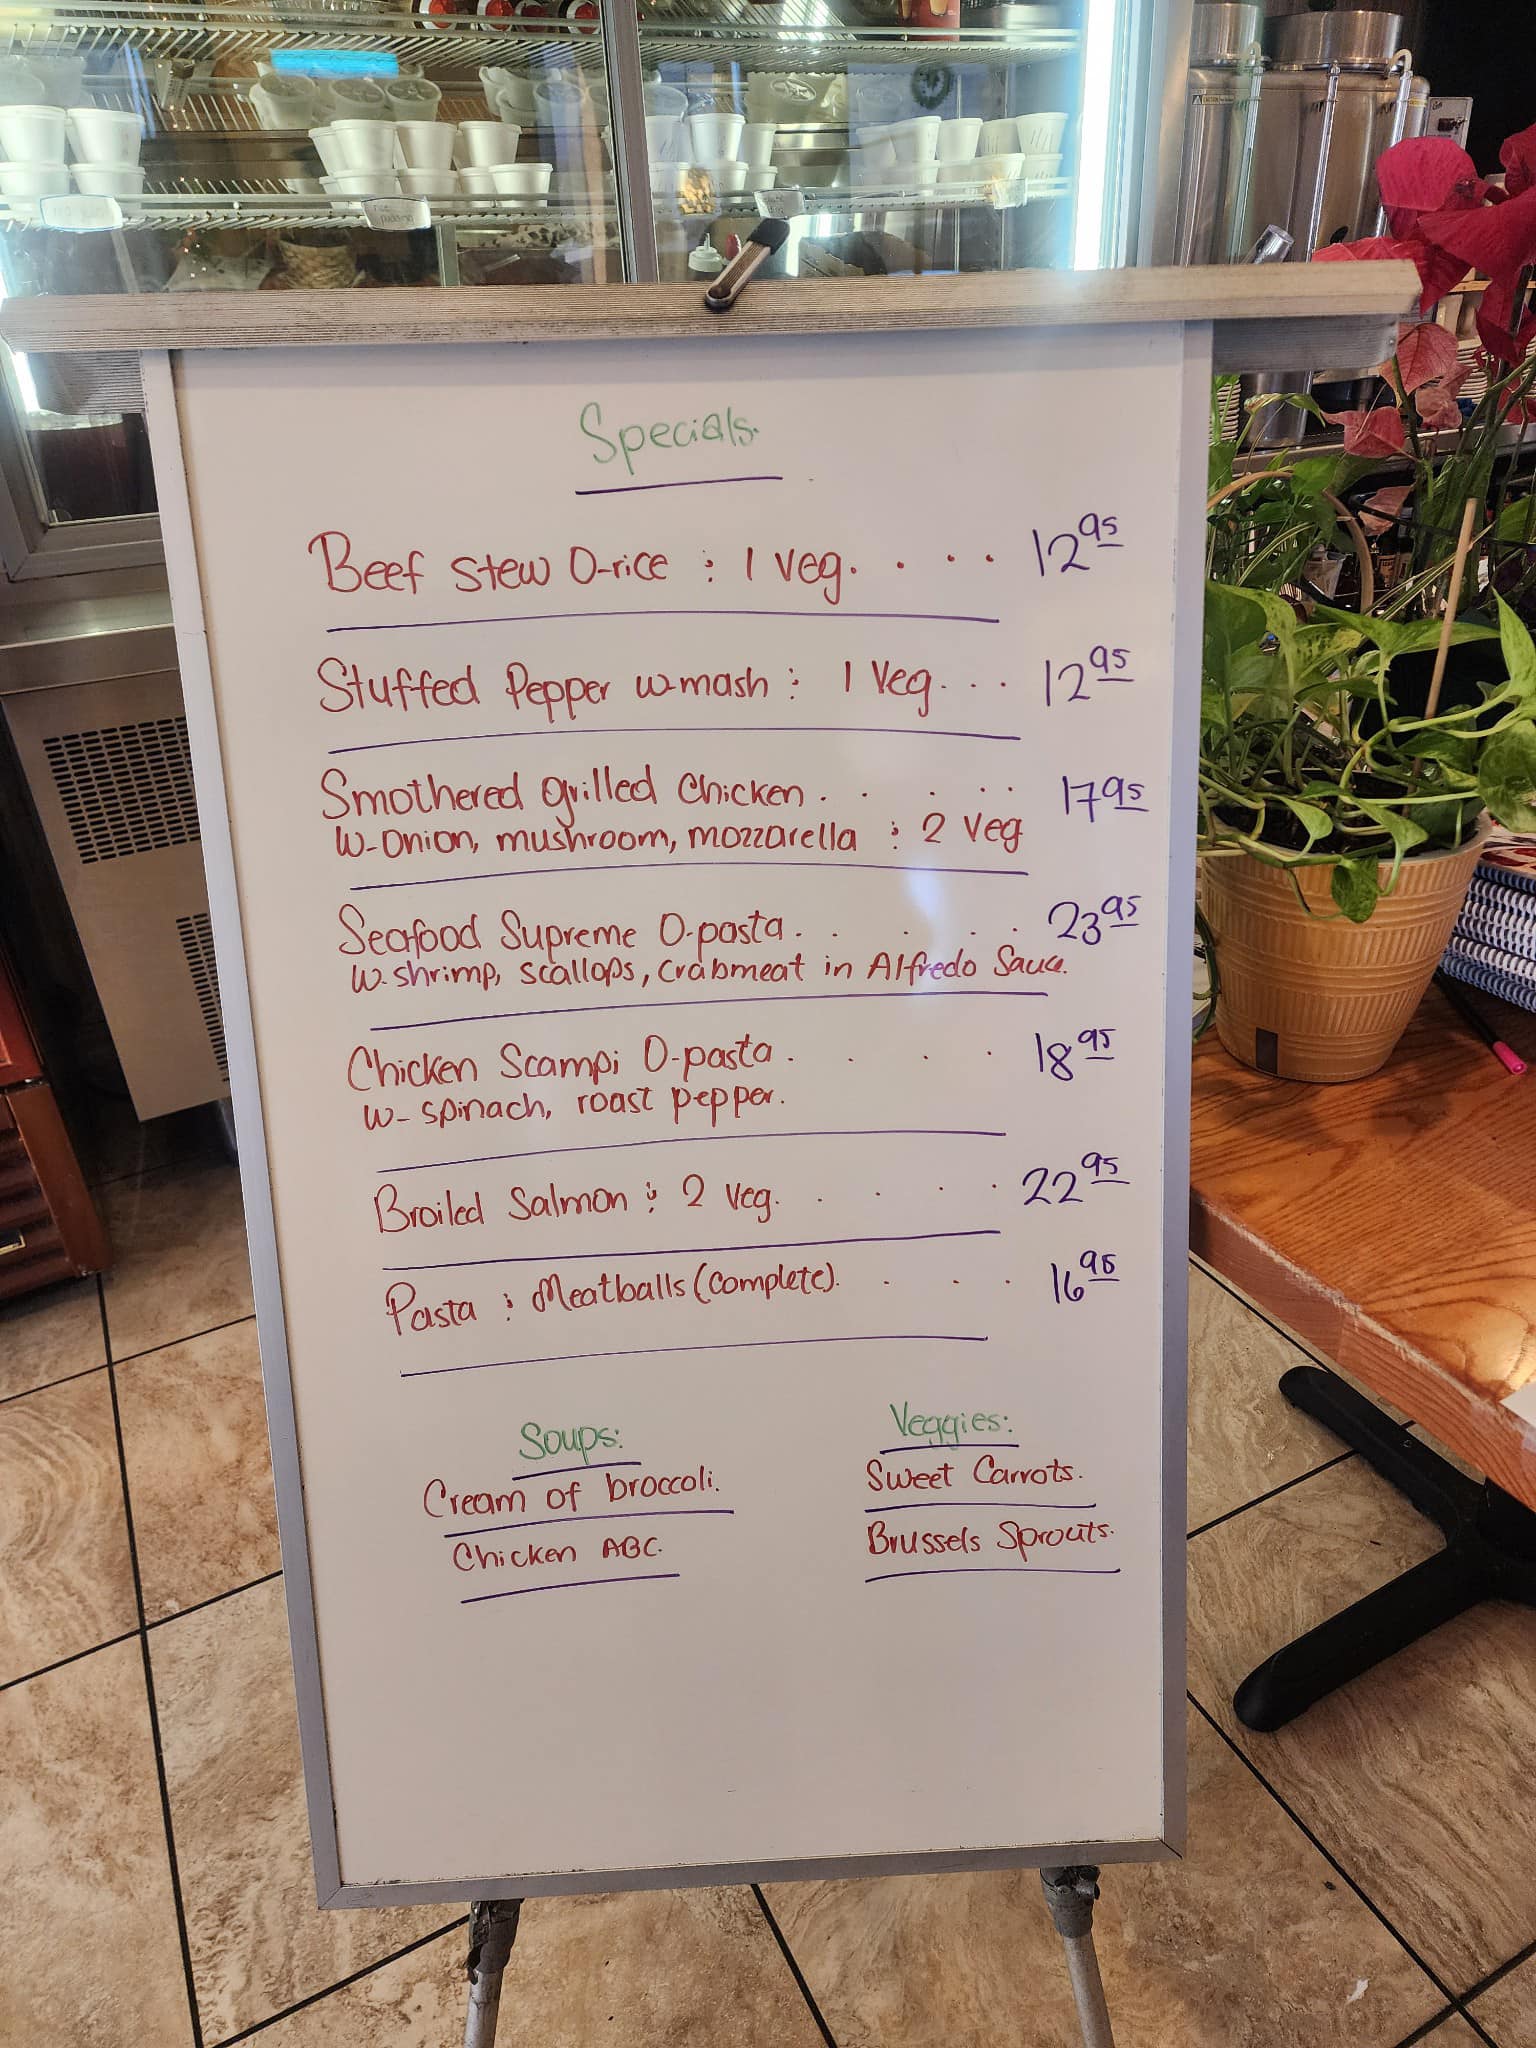 CAUTION
rice pudding
Specials.
Beef stew O-rice : 1 veg. . . . 12 95
Stuffed Pepper w-mash : 1 Veg. . . 12 95
Smothered grilled Chicken . . . . . 17 95
w-onion, mushroom, mozzarella : 2 Veg
Seafood Supreme O-pasta. . . . . 23 95
w-shrimp, scallops, crabmeat in Alfredo Sauce.
Chicken Scampi O-pasta . . . . 18 95
w- spinach, roast pepper.
Broiled Salmon : 2 Veg. . . . . 22 95
Pasta : Meatballs (complete). . . . 16 95
Soups:
Cream of broccoli.
Chicken ABC.
Veggies:
Sweet Carrots.
Brussels Sprouts.